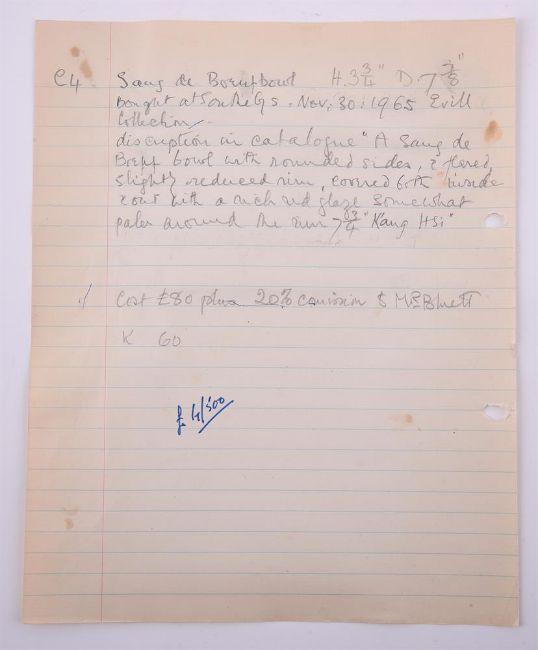 C4 Sang de Boeuf bowl H. 3 3/4" D. 7 7/8"
bought at Sothebys. Nov: 30: 1965 Evill
Collection
discription in catalogue "A Sang de
Boeff bowl with rounded sides, & flered,
slightly reduced rim, covered both inside
& out with a rich red glaze somewhat
paler around the rim 7 3/4" Kang Hsi"
Cost £80 plus 20% comission to Mr Bluett
K 60
£ 4/500